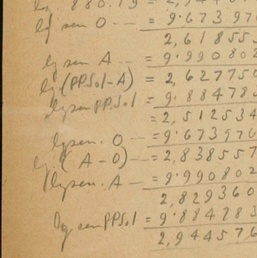 lg 880.19 = 2,944
lg sen O — = 9.67397
2,618553
lg sen A — = 9.990802
lg (PPSol-A) = 2,627750
lg sen PPSol = 9.884783
= 2,512534
lg sen. O — = 9.673976
lg. (A-O) — = 2,838557
lg sen. A — = 9.990802
2,829360
lg sen PPSol = 9.884783
2,944576